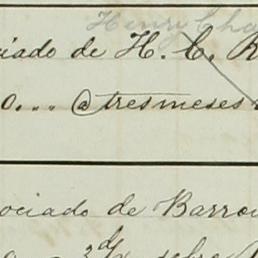 Henry Cha
ciado de H. C. R
0... @ tres meses
ociado de Barro
3 d/ sobre